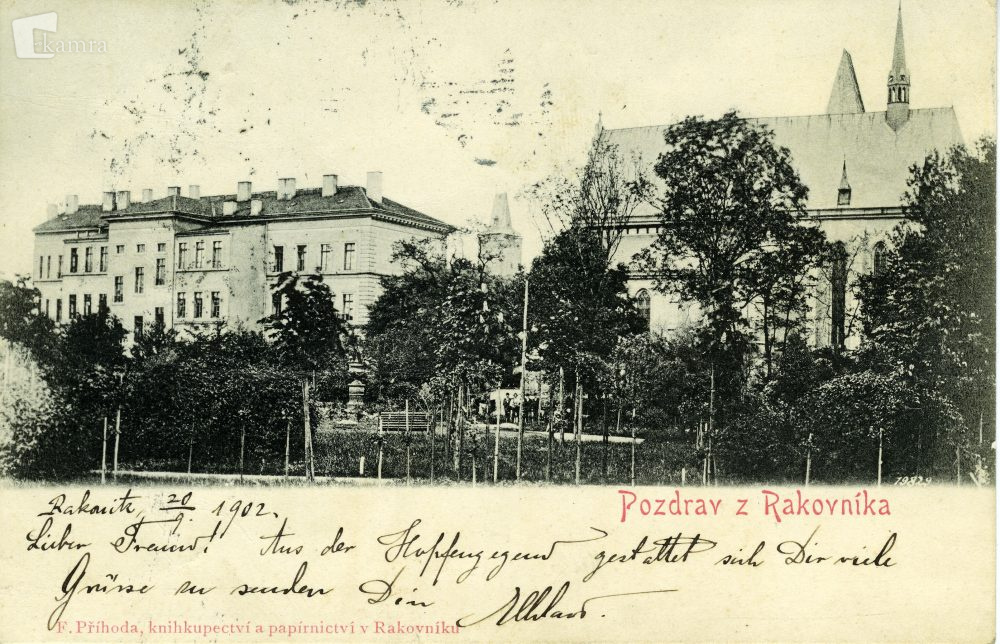 kamra
79829
Pozdrav z Rakovníka
Rakonitz, 20/9. 1902.
Lieber Freund! Aus der Hopfengegend gestattet sich Dir viele
Grüsse zu senden Dein
F. Příhoda, knihkupectví a papírnictví v Rakovníku